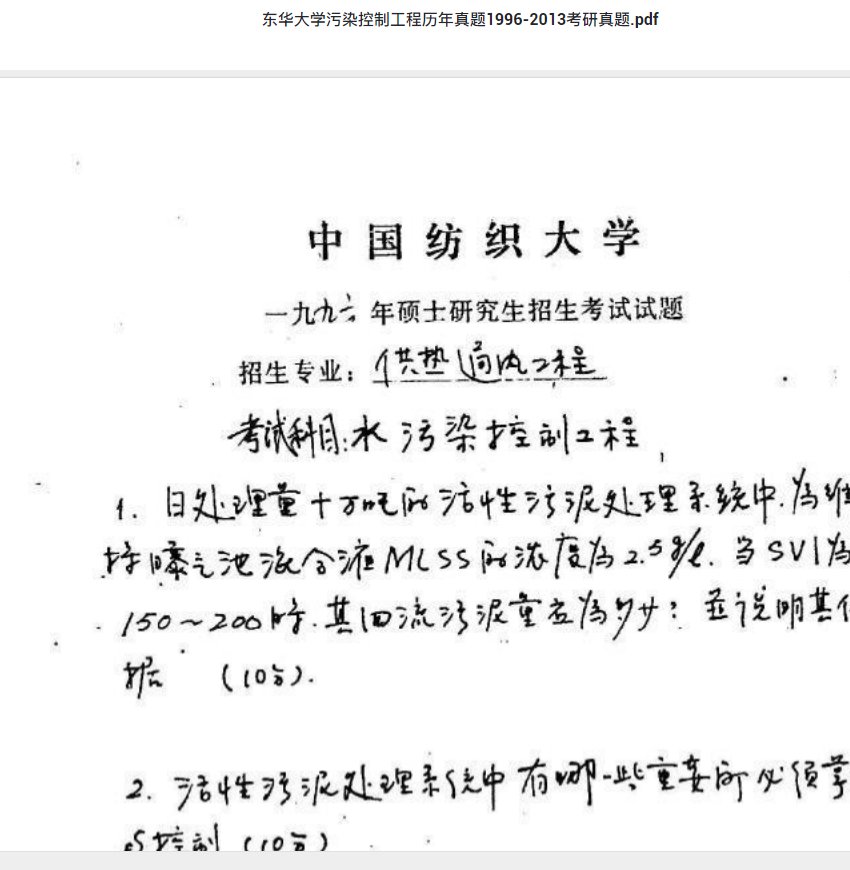 东华大学污染控制工程历年真题1996-2013考研真题.pdf
中国纺织大学
一九九六年硕士研究生招生考试试题
招生专业：供热通风工程
考试科目：水污染控制工程
1. 日处理量十万吨的活性污泥处理系统中.为维
持曝气池混合液MLSS的浓度为2.5g/l.当SVI为
150～200时.其回流污泥量应为多少？并说明其依
据 (10分).
2. 活性污泥处理系统中有哪一些重要的必须掌
的控制 (10分)